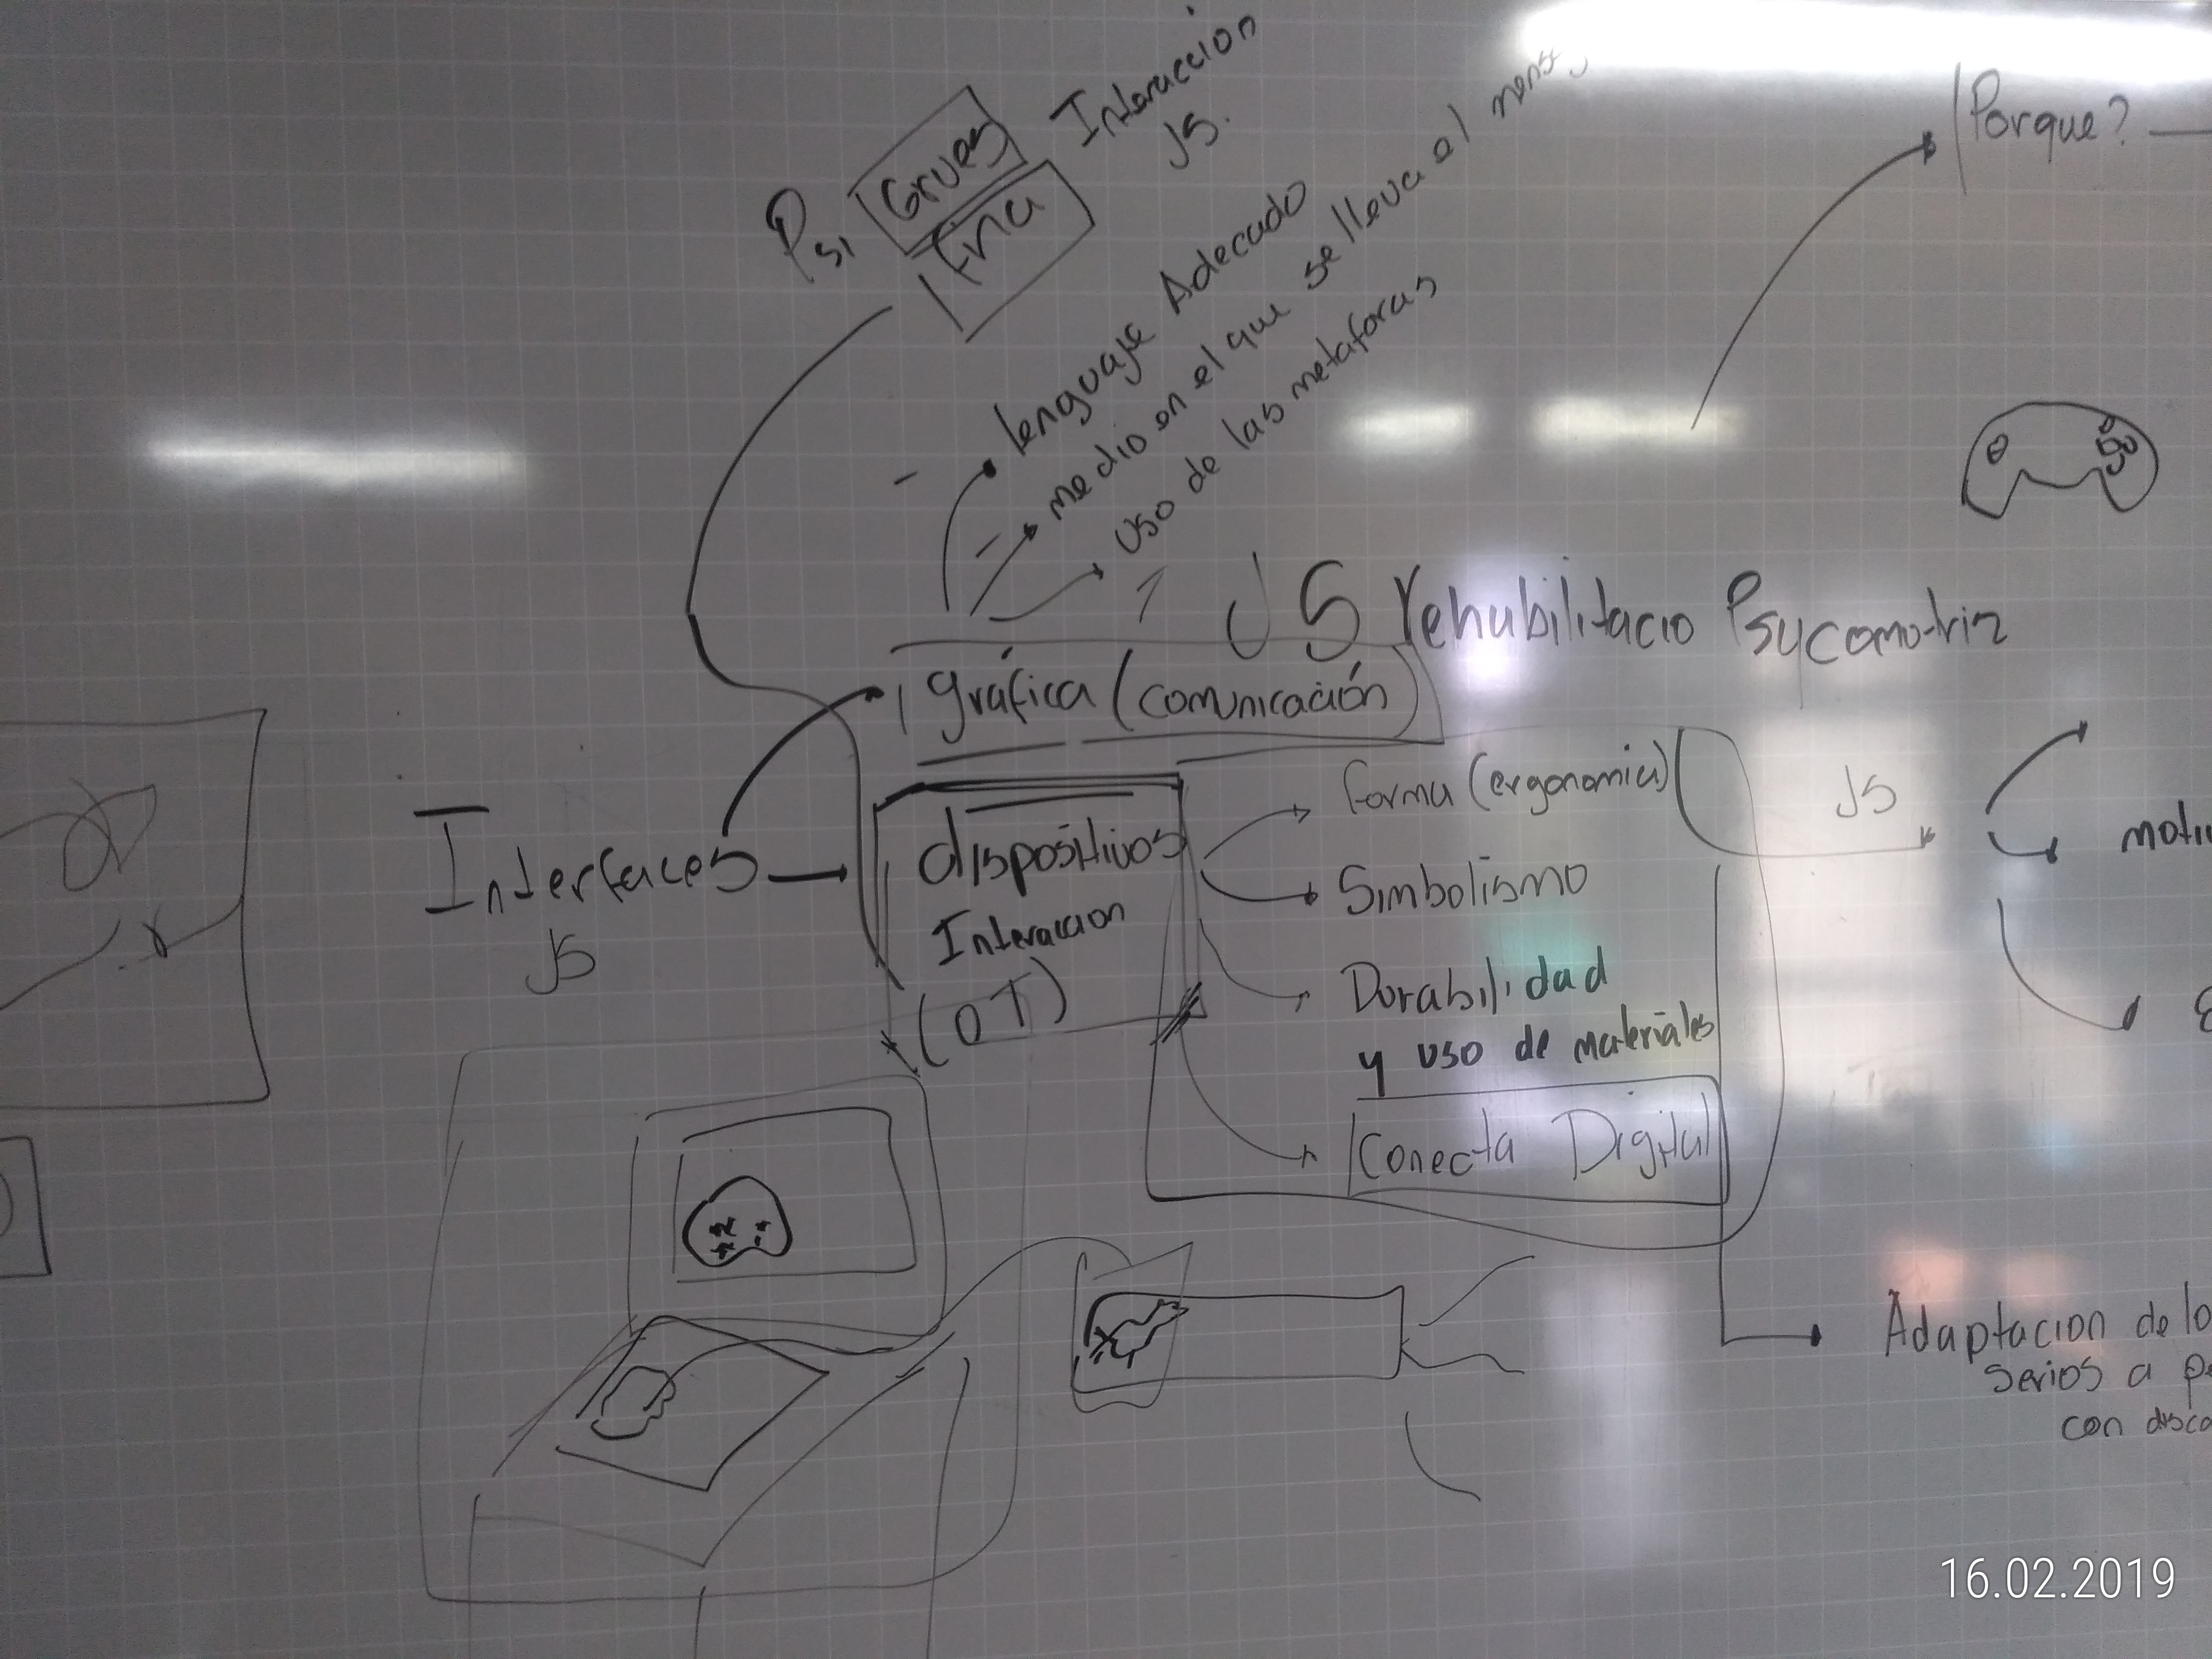 Interaccion
JS.
Psi Grues
Fina
Porque?
lenguaje Adecuado
medio en el que se lleva el
uso de las metaforas
JS rehabilitacio Psycomotriz
gráfica (comunicación)
Interfaces
JS
dispositivos
Interaccion
(OT)
forma (ergonomia)
Simbolismo
Durabilidad
y uso de materiales
Conecta Digital
JS
Adaptacion de lo
serios a pe
con disca
16.02.2019